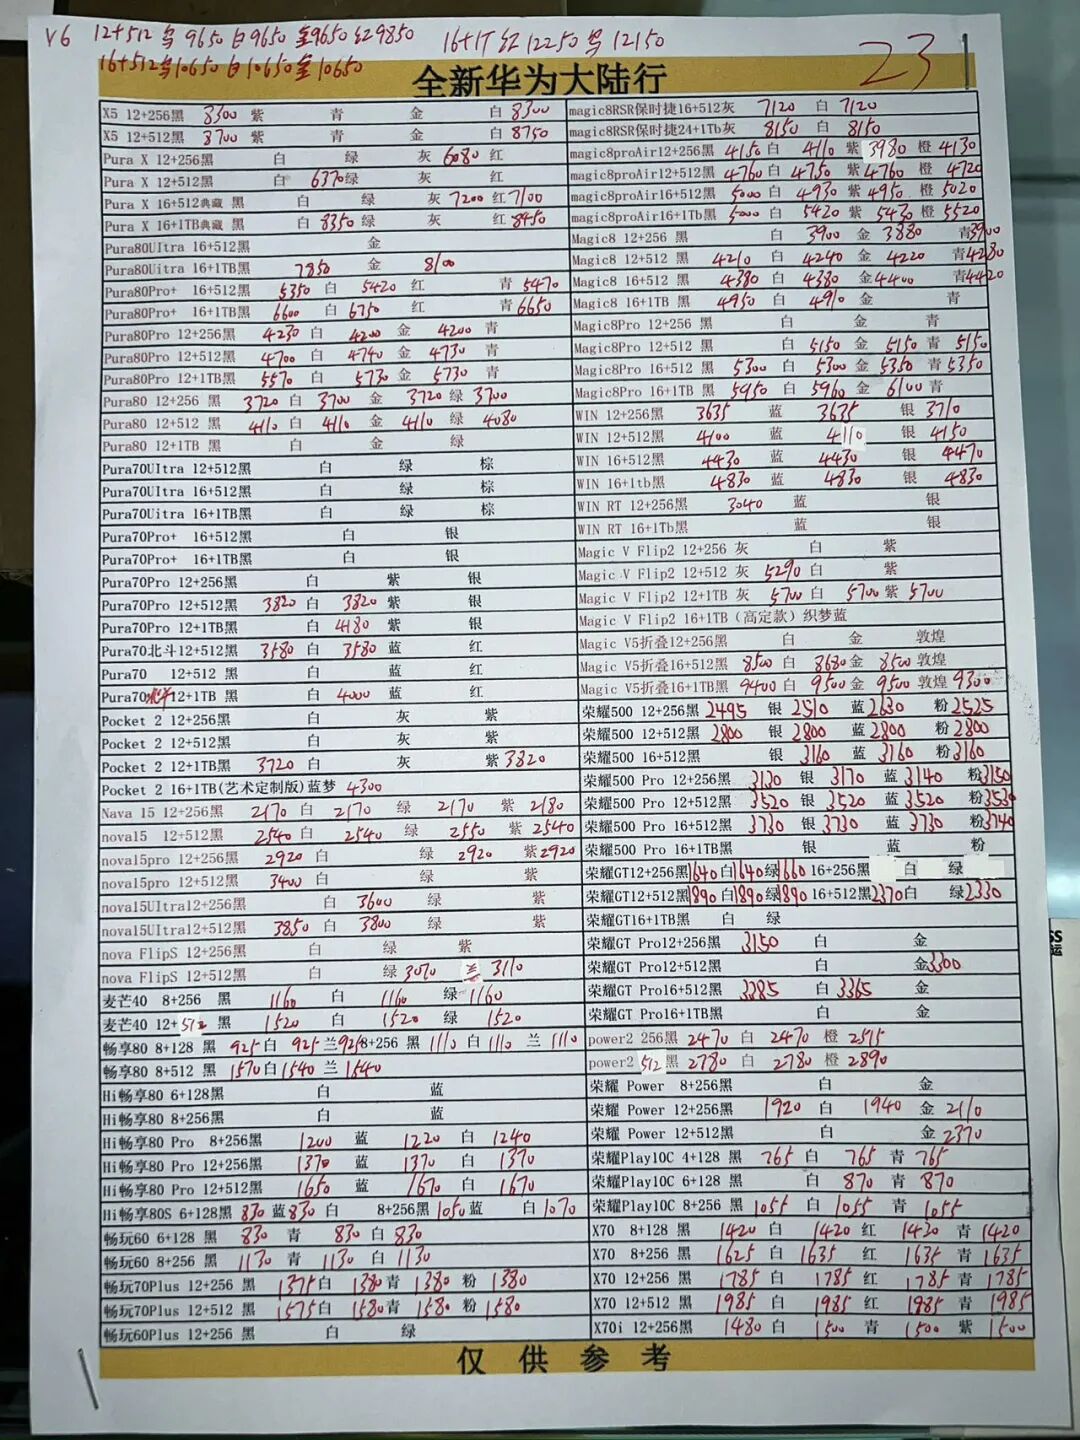 V6 12+512 黑 9650 白9650 金9650 红9850 16+1T 红 12250 黑 12150
16+512黑10650 白10650 金10650
23
全新华为大陆行
X5 12+256黑 8300 紫 青 金 白8300
X5 12+512黑 8700 紫 青 金 白8750
Pura X 12+256黑 白 绿 灰 6080 红
Pura X 12+512黑 白 6370绿 灰 红
Pura X 16+512典藏 黑 白 绿 灰 7200 红7100
Pura X 16+1TB典藏 黑 白 8350 绿 灰 红8450
Pura80UItra 16+512黑 金
Pura80Uitra 16+1TB黑 7850 金 8100
Pura80Pro+ 16+512黑 5350 白 5420 红 青 5470
Pura80Pro+ 16+1TB黑 6600 白 6750 红 青6650
Pura80Pro 12+256黑 4230 白 4200 金 4200 青
Pura80Pro 12+512黑 4700 白 4740 金 4730 青
Pura80Pro 12+1TB黑 5570 白 5730 金 5730 青
Pura80 12+256 黑 3720 白 3700 金 3720 绿 3700
Pura80 12+512 黑 4110 白 4110 金 4110 绿 4080
Pura80 12+1TB 黑 白 金 绿
Pura70UItra 12+512黑 白 绿 棕
Pura70UItra 16+512黑 白 绿 棕
Pura70Uitra 16+1TB黑 白 绿 棕
Pura70Pro+ 16+512黑 白 银
Pura70Pro+ 16+1TB黑 白 银
Pura70Pro 12+256黑 白 紫 银
Pura70Pro 12+512黑 3820 白 3820 紫 银
Pura70Pro 12+1TB黑 白 4180 紫 银
Pura70北斗12+512黑 3580 白 3580 蓝 红
Pura70 12+512 黑 白 蓝 红
Pura70北斗12+1TB 黑 白 4000 蓝 红
Pocket 2 12+256黑 白 灰 紫
Pocket 2 12+512黑 白 灰 紫
Pocket 2 12+1TB黑 3720 白 灰 紫3820
Pocket 2 16+1TB(艺术定制版)蓝梦 4300
Nava 15 12+256黑 2170 白 2170 绿 2170 紫 2180
nova15 12+512黑 2540 白 2540 绿 2550 紫 2540
nova15pro 12+256黑 2920 白 绿 2920 紫2920
nova15pro 12+512黑 3400 白 绿 紫
nova15UItra12+256黑 白 3600 绿 紫
nova15UItra12+512黑 3850 白 3800 绿 紫
nova FlipS 12+256黑 白 绿 紫
nova FlipS 12+512黑 白 绿 3070 兰 3110
麦芒40 8+256 黑 1160 白 1160 绿 1160
麦芒40 12+512 黑 1520 白 1520 绿 1520
畅享80 8+128 黑 925白 925 兰925 8+256 黑 1110 白 1110 兰 1110
畅享80 8+512 黑 1570白1540 兰 1540
Hi畅享80 6+128黑 白 蓝
Hi畅享80 8+256黑 白 蓝
Hi畅享80 Pro 8+256黑 1200 蓝 1220 白 1240
Hi畅享80 Pro 12+256黑 1370 蓝 1370 白 1370
Hi畅享80 Pro 12+512黑 1650 蓝 1670 白 1670
Hi畅享80S 6+128黑 830 蓝830 白 8+256黑 1050 蓝 白 1070
畅玩60 6+128 黑 830 青 830 白 830
畅玩60 8+256 黑 1130 青 1130 白 1130
畅玩70Plus 12+256 黑 1375白 1380青 1380 粉 1380
畅玩70Plus 12+512 黑 1575白 1580青 1580 粉 1580
畅玩60Plus 12+256 黑 白 绿
magic8RSR保时捷16+512灰 7120 白 7120
magic8RSR保时捷24+1Tb灰 8150 白 8150
magic8proAir12+256黑 4150 白 4110 紫 3980 橙 4130
magic8proAir12+512黑 4760白 4750 紫4760 橙 4720
magic8proAir16+512黑 5000 白 4930 紫 4950 橙 5020
magic8proAir16+1Tb黑 5000 白 5420 紫 5430 橙 5520
Magic8 12+256 黑 白 3900 金 3880 青3900
Magic8 12+512 黑 4210 白 4240 金 4220 青4280
Magic8 16+512 黑 4380 白 4380 金4400 青4420
Magic8 16+1TB 黑 4950 白 4910 金 青
Magic8Pro 12+256 黑 白 金 青
Magic8Pro 12+512 黑 白 5150 金 5150 青 5150
Magic8Pro 16+512 黑 5300 白 5300 金 5350 青5350
Magic8Pro 16+1TB 黑 5950 白 5960 金 6100 青
WIN 12+256黑 3635 蓝 3635 银 3710
WIN 12+512黑 4100 蓝 4110 银 4150
WIN 16+512黑 4430 蓝 4430 银 4470
WIN 16+1tb黑 4830 蓝 4830 银 4830
WIN RT 12+256黑 3040 蓝 银
WIN RT 16+1Tb黑 蓝 银
Magic V Flip2 12+256 灰 白 紫
Magic V Flip2 12+512 灰 5290 白 紫
Magic V Flip2 12+1TB 灰 5700 白 5700 紫 5700
Magic V Flip2 16+1TB（高定款）织梦蓝
Magic V5折叠12+256黑 白 金 敦煌
Magic V5折叠16+512黑 8500 白 8680 金 8500 敦煌
Magic V5折叠16+1TB黑 9400 白 9500 金 9500 敦煌 9300
荣耀500 12+256黑 2495 银 2510 蓝2630 粉 2525
荣耀500 12+512黑 2800 银 2800 蓝2800 粉 2800
荣耀500 16+512黑 银 3160 蓝 3160 粉3160
荣耀500 Pro 12+256黑 3130 银 3170 蓝 3140 粉3150
荣耀500 Pro 12+512黑 3520 银 3520 蓝 3520 粉3530
荣耀500 Pro 16+512黑 3730 银 3730 蓝 3730 粉3740
荣耀500 Pro 16+1TB黑 银 蓝 粉
荣耀GT12+256黑1640 白1640绿1660 16+256黑 白 绿
荣耀GT12+512黑1890 白1890绿1890 16+512黑2370白 绿2330
荣耀GT16+1TB黑 白 绿
荣耀GT Pro12+256黑 3150 白 金
荣耀GT Pro12+512黑 白 金3300
荣耀GT Pro16+512黑 3285 白 3365 金
荣耀GT Pro16+1TB黑 白 金
power2 256黑 2470 白 2470 橙 2515
power2 512 黑 2780 白 2780 橙 2890
荣耀 Power 8+256黑 白 金
荣耀 Power 12+256黑 1920 白 1940 金 2110
荣耀 Power 12+512黑 白 金 2370
荣耀Play10C 4+128 黑 765 白 765 青 765
荣耀Play10C 6+128 黑 白 870 青 870
荣耀Play10C 8+256 黑 1055 白 1055 青 1055
X70 8+128 黑 1420 白 1420 红 1420 青 1420
X70 8+256 黑 1625 白 1635 红 1635 青 1635
X70 12+256 黑 1785 白 1785 红 1785 青 1785
X70 12+512 黑 1985 白 1985 红 1985 青 1985
X70i 12+256黑 1480 白 1500 青 1500 紫 1500
仅供参考